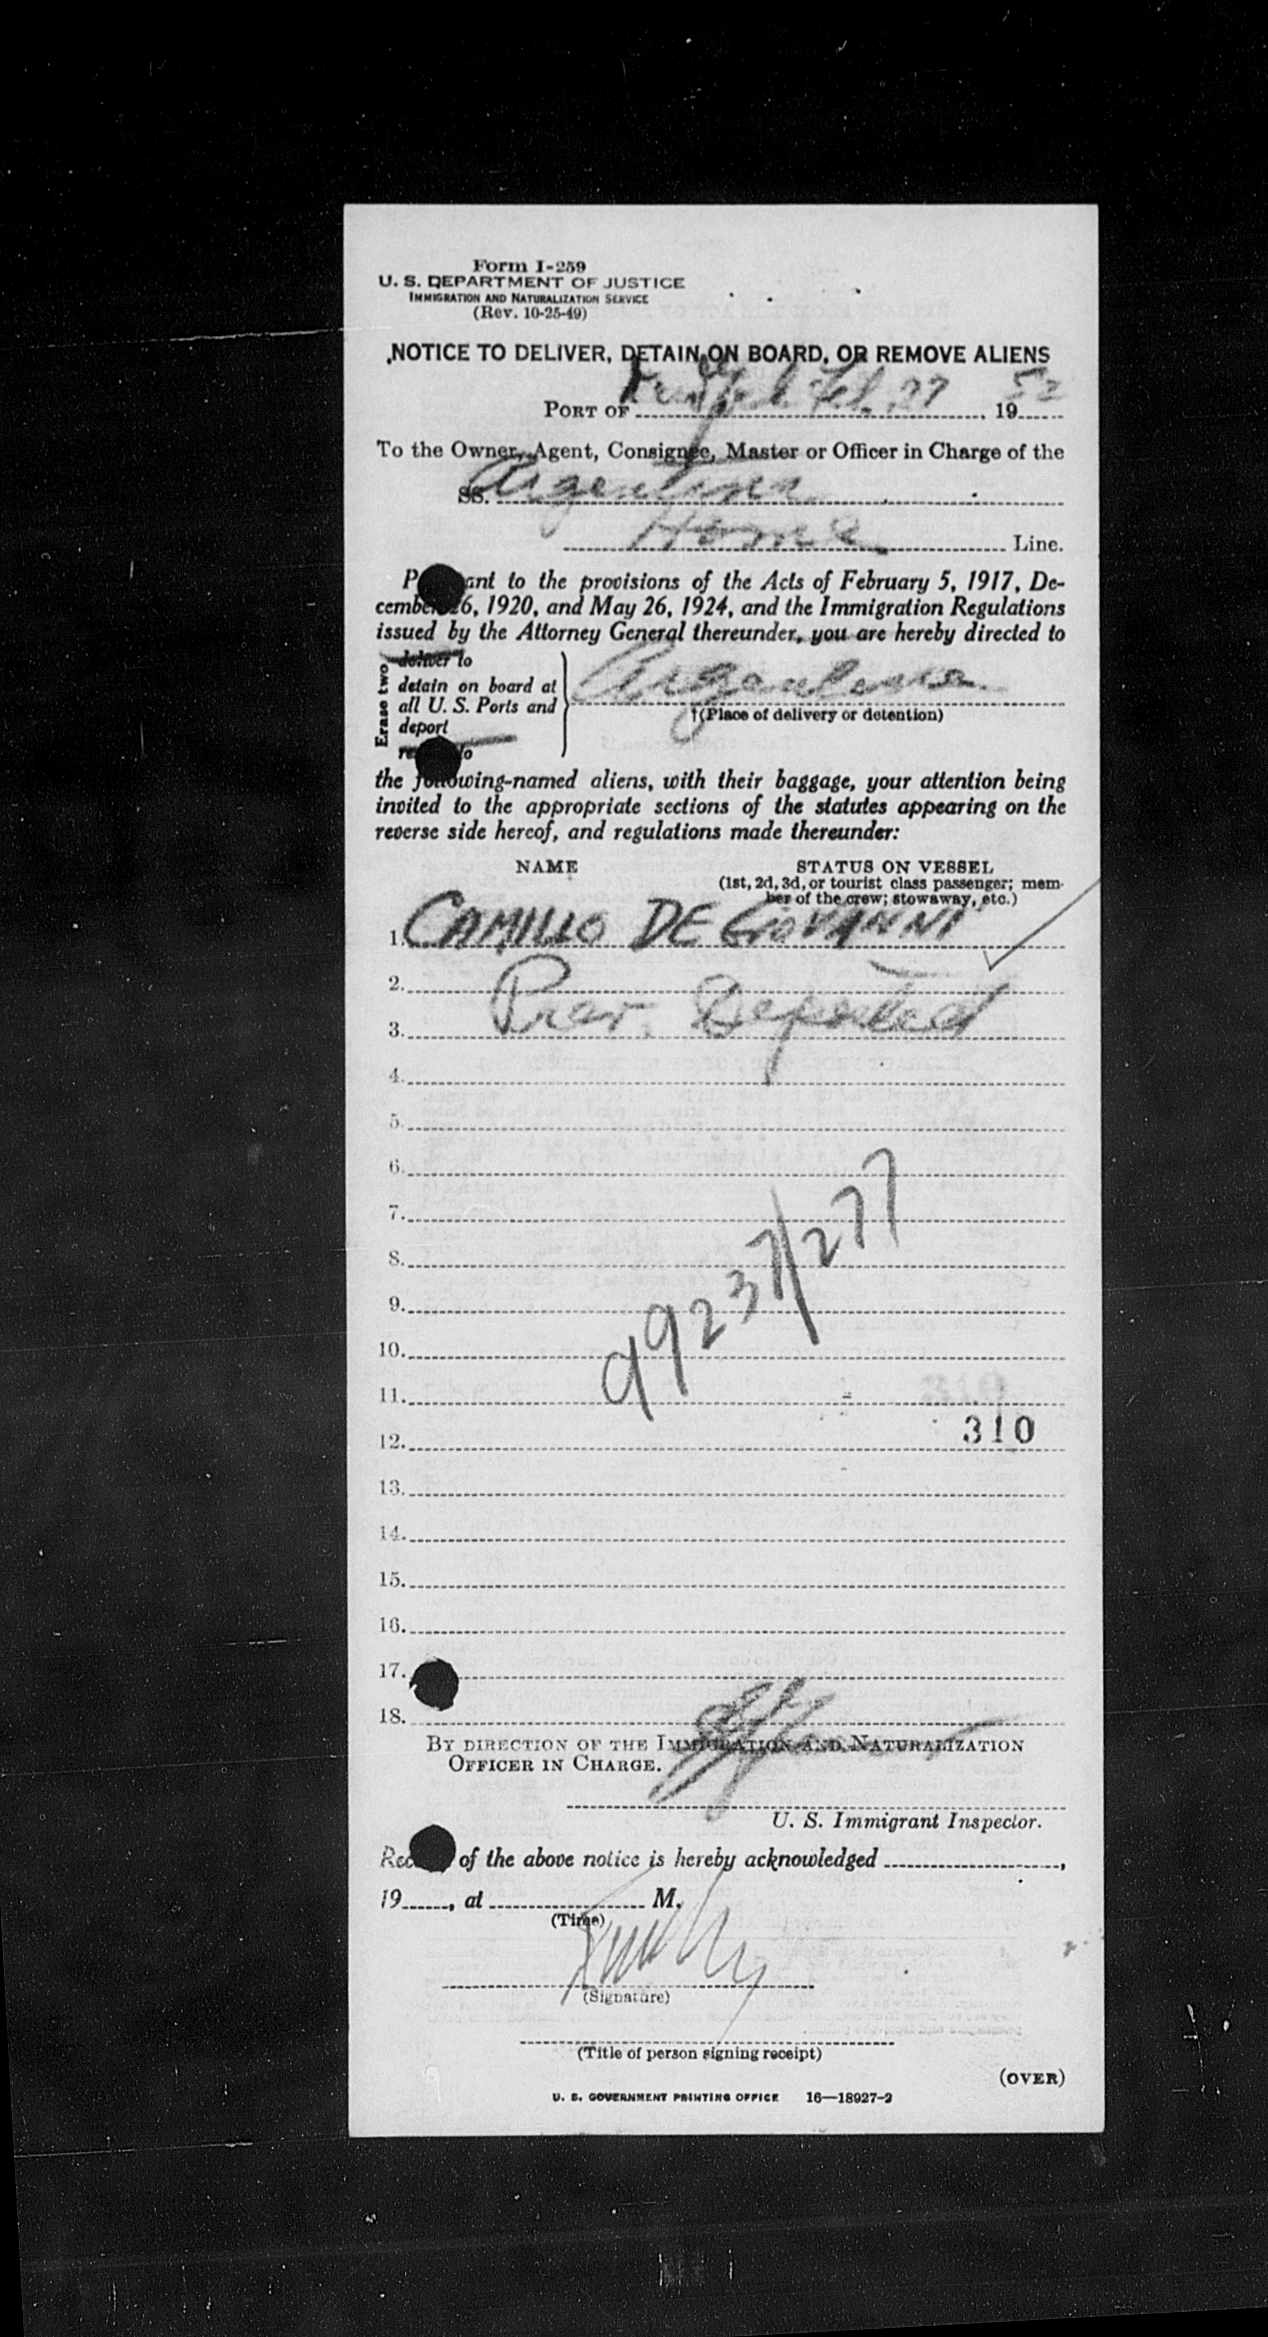 Form I-259
U. S. DEPARTMENT OF JUSTICE
IMMIGRATION AND NATURALIZATION SERVICE
(Rev. 10-25-49)
NOTICE TO DELIVER, DETAIN ON BOARD, OR REMOVE ALIENS
PORT OF New York Feb. 27, 1952
To the Owner, Agent, Consignee, Master or Officer in Charge of the
SS. Argentina
Home Line.
P ant to the provisions of the Acts of February 5, 1917, De-
cember 26, 1920, and May 26, 1924, and the Immigration Regulations
issued by the Attorney General thereunder, you are hereby directed to
Erase two
deliver to
detain on board at
all U. S. Ports and
deport
re to
Argentina
†(Place of delivery or detention)
the following-named aliens, with their baggage, your attention being
invited to the appropriate sections of the statutes appearing on the
reverse side hereof, and regulations made thereunder:
NAME STATUS ON VESSEL
(1st, 2d, 3d, or tourist class passenger; mem-
ber of the crew; stowaway, etc.)
1. CAMILLO DE GIOVANNI
2.
3. Prev. Deported
4.
5.
6.
7.
8.
9.
10.
99237/277
11.
12. 310
13.
14.
15.
16.
17.
18.
BY DIRECTION OF THE IMMIGRATION AND NATURALIZATION
OFFICER IN CHARGE.
U. S. Immigrant Inspector.
Rec of the above notice is hereby acknowledged ,
19 , at M.
(Time)
(Signature)
(Title of person signing receipt)
(OVER)
U. S. GOVERNMENT PRINTING OFFICE 16—18927-2